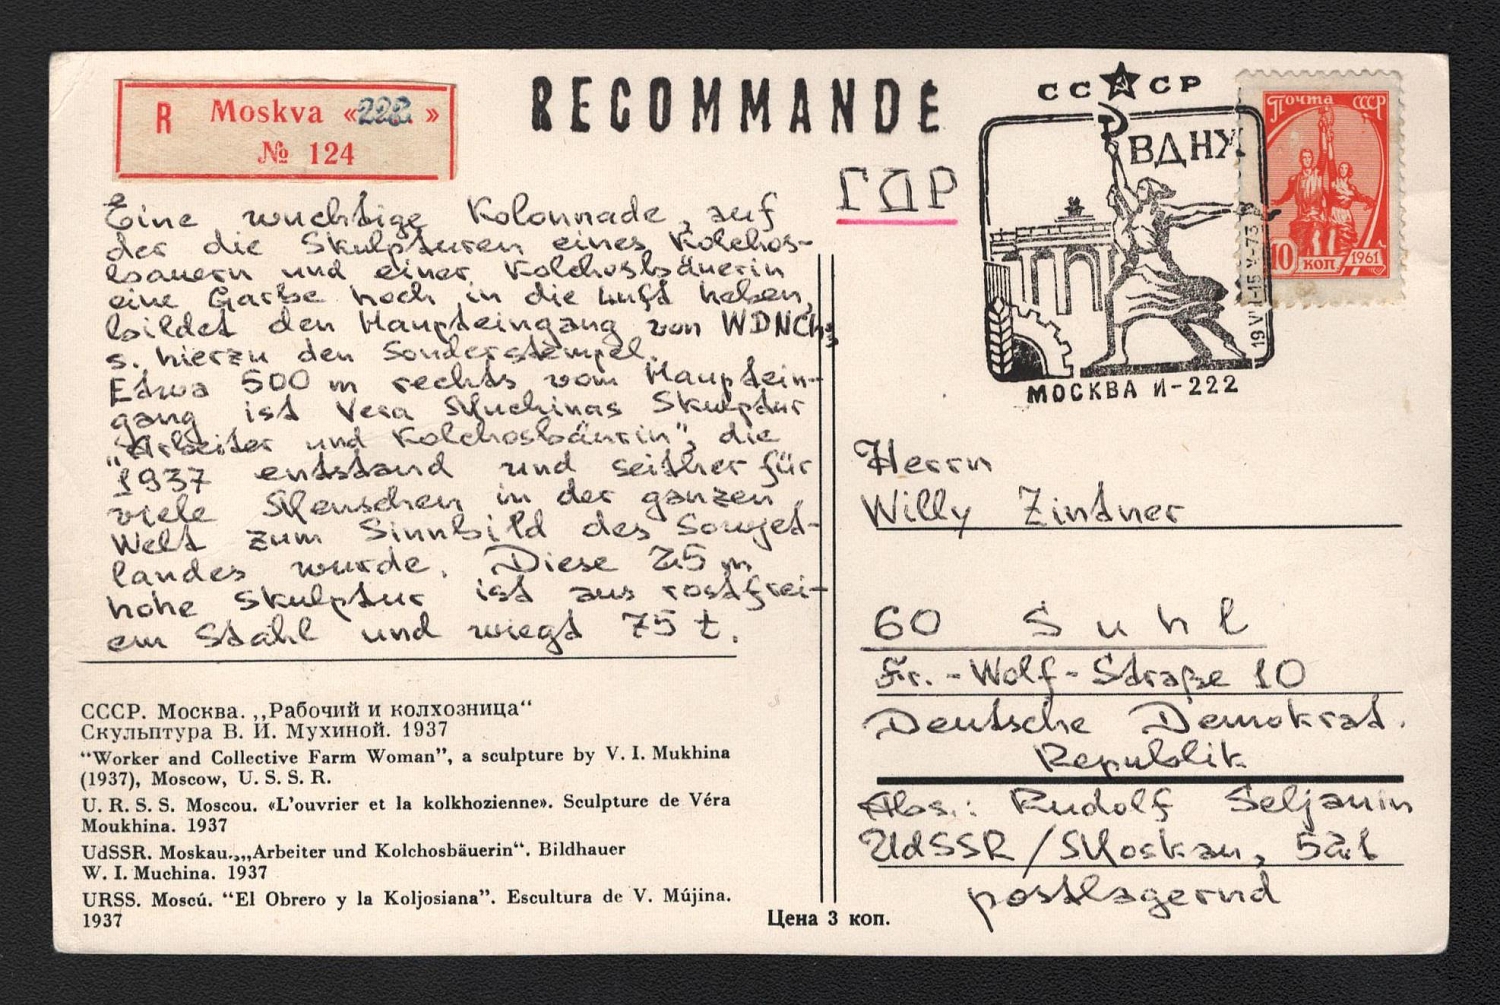 R Moskva «222»
№ 124
RECOMMANDÉ
ГДР
СССР
ВДНХ
МОСКВА И-222
Почта СССР
10 коп 1961
Eine wuchtige Kolonnade, auf
der die Skulpturen eines Kolchos-
bauern und einer Kolchosbäuerin
eine Garbe hoch in die Luft heben,
bildet den Haupteingang von WDNCh;
s. hierzu den Sonderstempel.
Etwa 500 m rechts vom Hauptein-
gang ist Vera Muchinas Skulptur
„Arbeiter und Kolchosbäurin”, die
1937 entstand und seither für
viele Menschen in der ganzen
Welt zum Sinnbild des Sowjet-
landes wurde. Diese 25 m
hohe Skulptur ist aus rostfrei-
em Stahl und wiegt 75 t.
СССР. Москва. „Рабочий и колхозница“
Скульптура В. И. Мухиной. 1937
“Worker and Collective Farm Woman”, a sculpture by V. I. Mukhina
(1937), Moscow, U. S. S. R.
U. R. S. S. Moscou. «L'ouvrier et la kolkhozienne». Sculpture de Véra
Moukhina. 1937
UdSSR. Moskau. „Arbeiter und Kolchosbäuerin“. Bildhauer
W. I. Muchina. 1937
URSS. Moscú. “El Obrero y la Koljosiana”. Escultura de V. Mújina.
1937
Цена 3 коп.
Herrn
Willy Zintner
60 Suhl
Fr.-Wolf-Straße 10
Deutsche Demokrat.
Republik
Abs.: Rudolf Seljanin
UdSSR / Moskau,
postlagernd